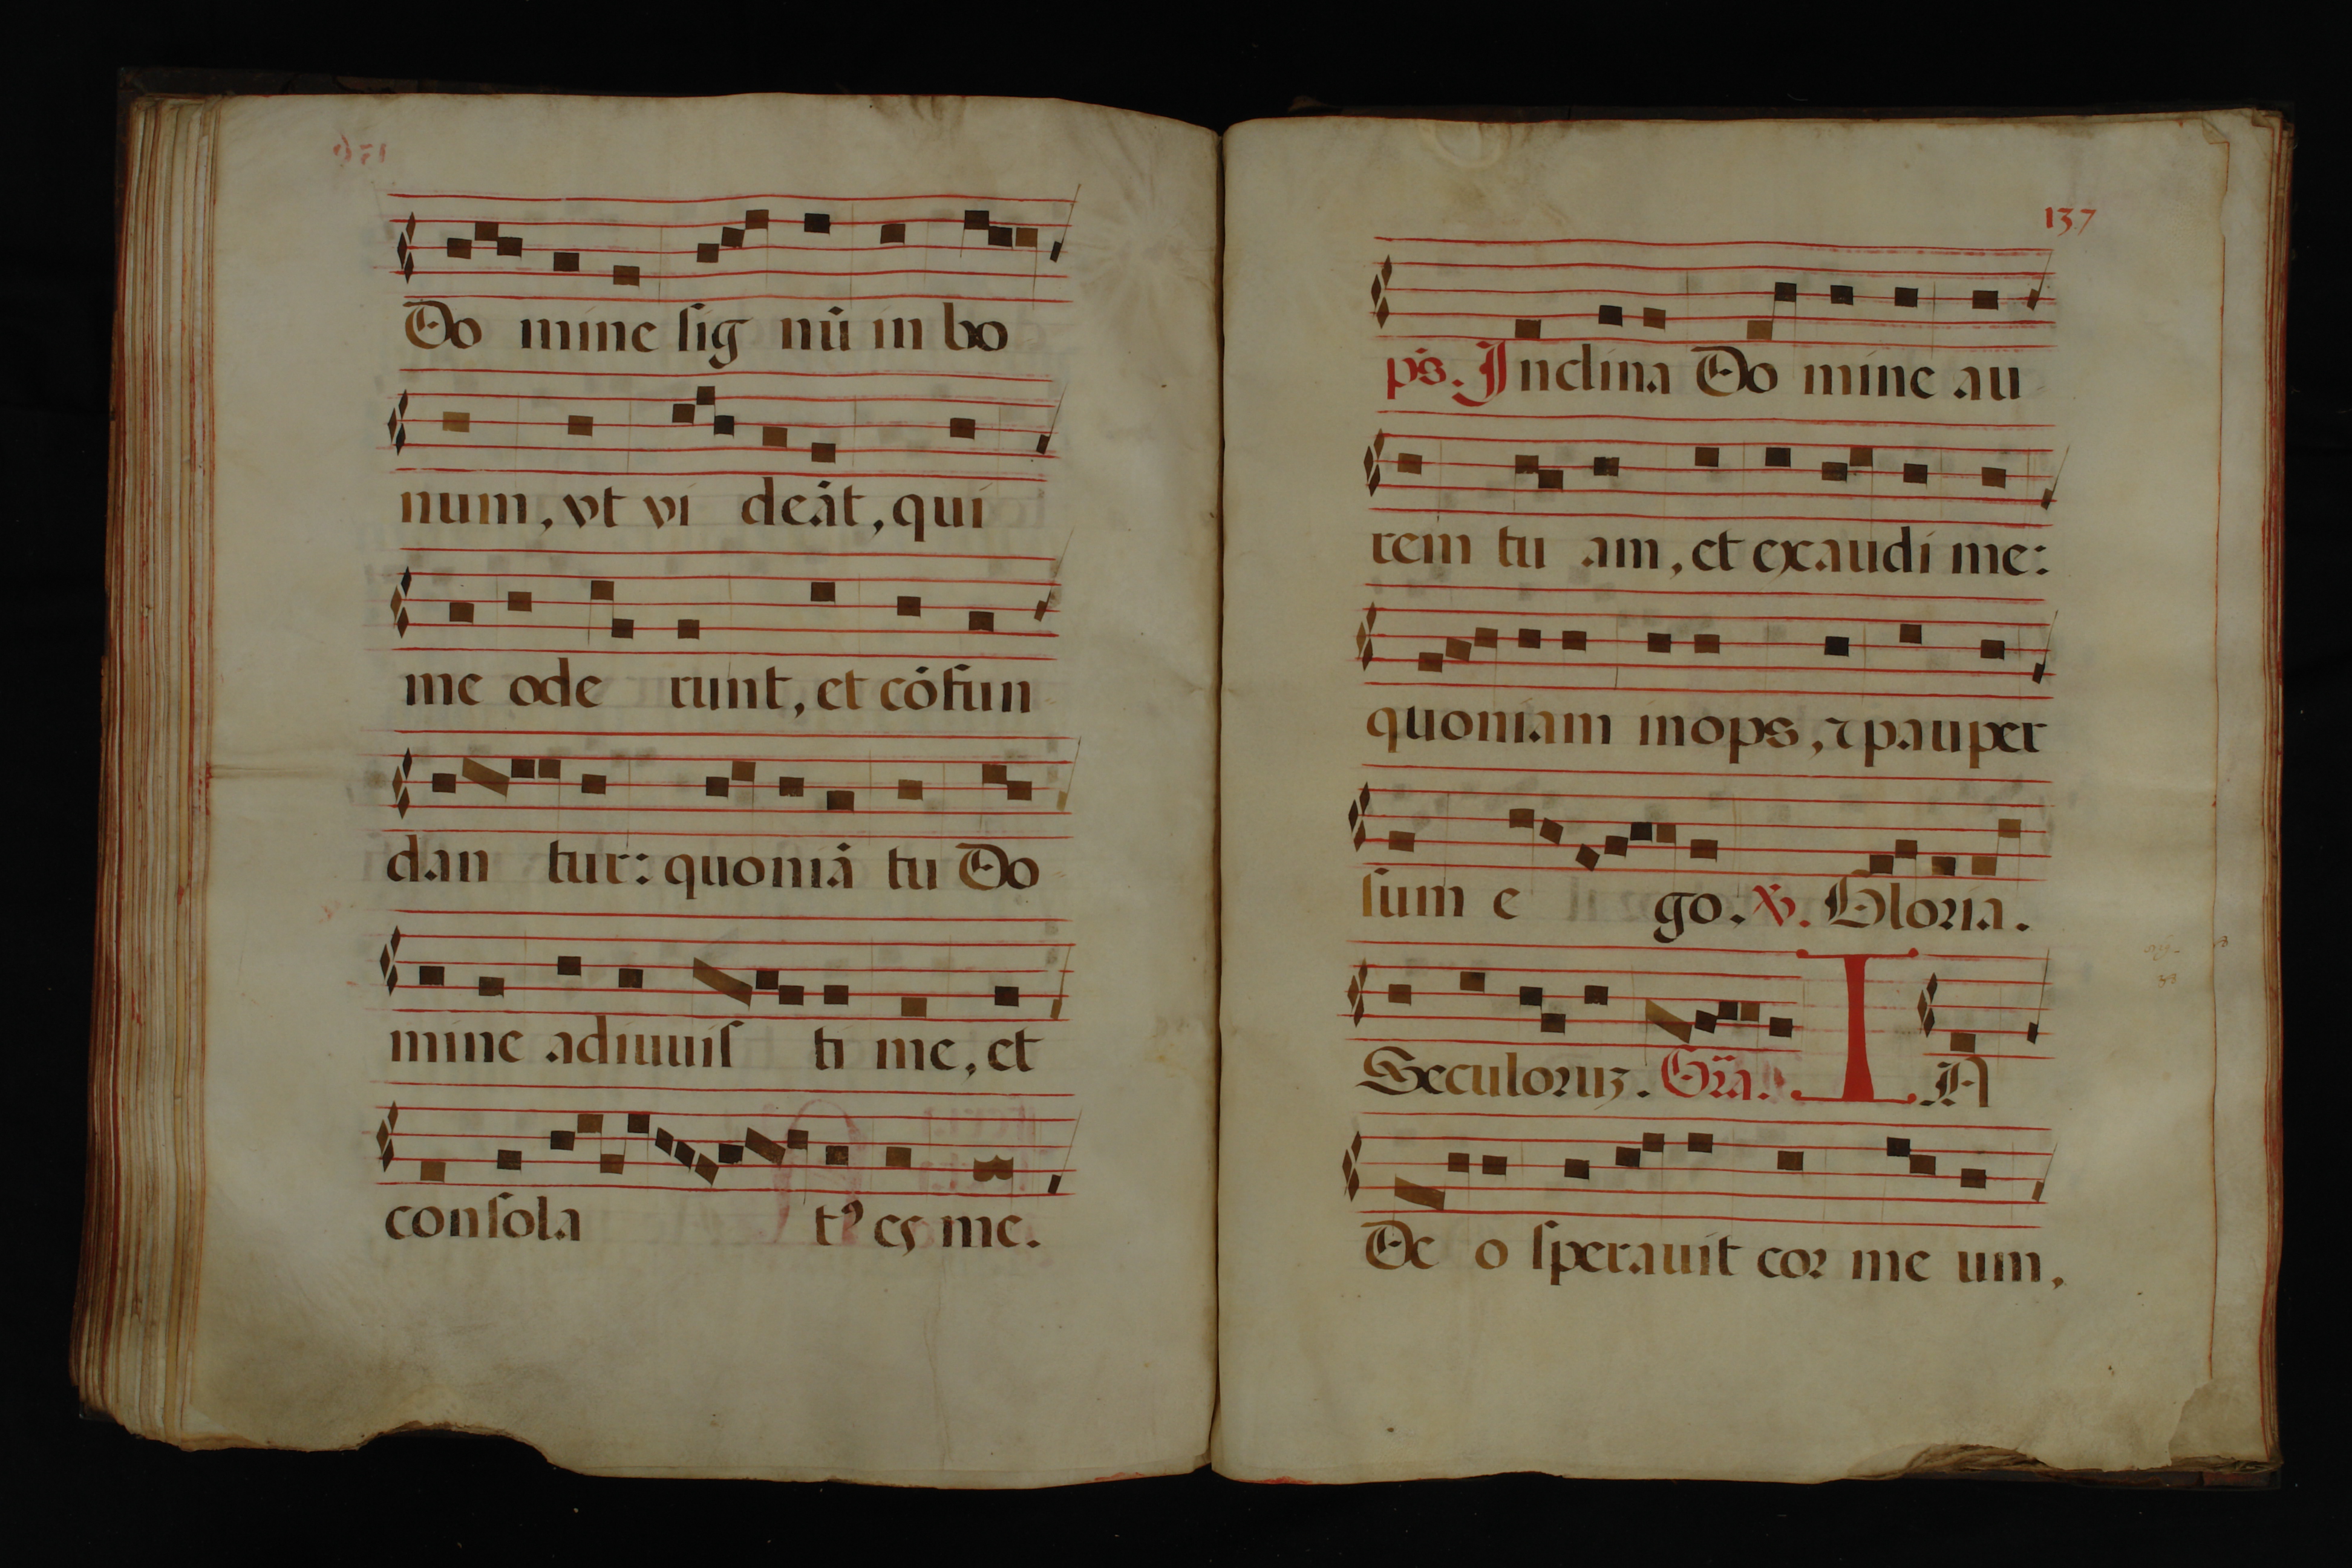 Do mine sig nū in bo
num, vt vi deāt, qui
me ode runt, et cōfun
dan tur: quoniā tu Do
mine adiuuis ti me, et
consola tꝰ es me.
137
ps. Inclina Do mine au
rem tu am, et exaudi me:
quoniam inops, ⁊ pauper
sum e go. ℣. Gloria.
Seculoruz. Gra. I A
De o sperauit cor me um,